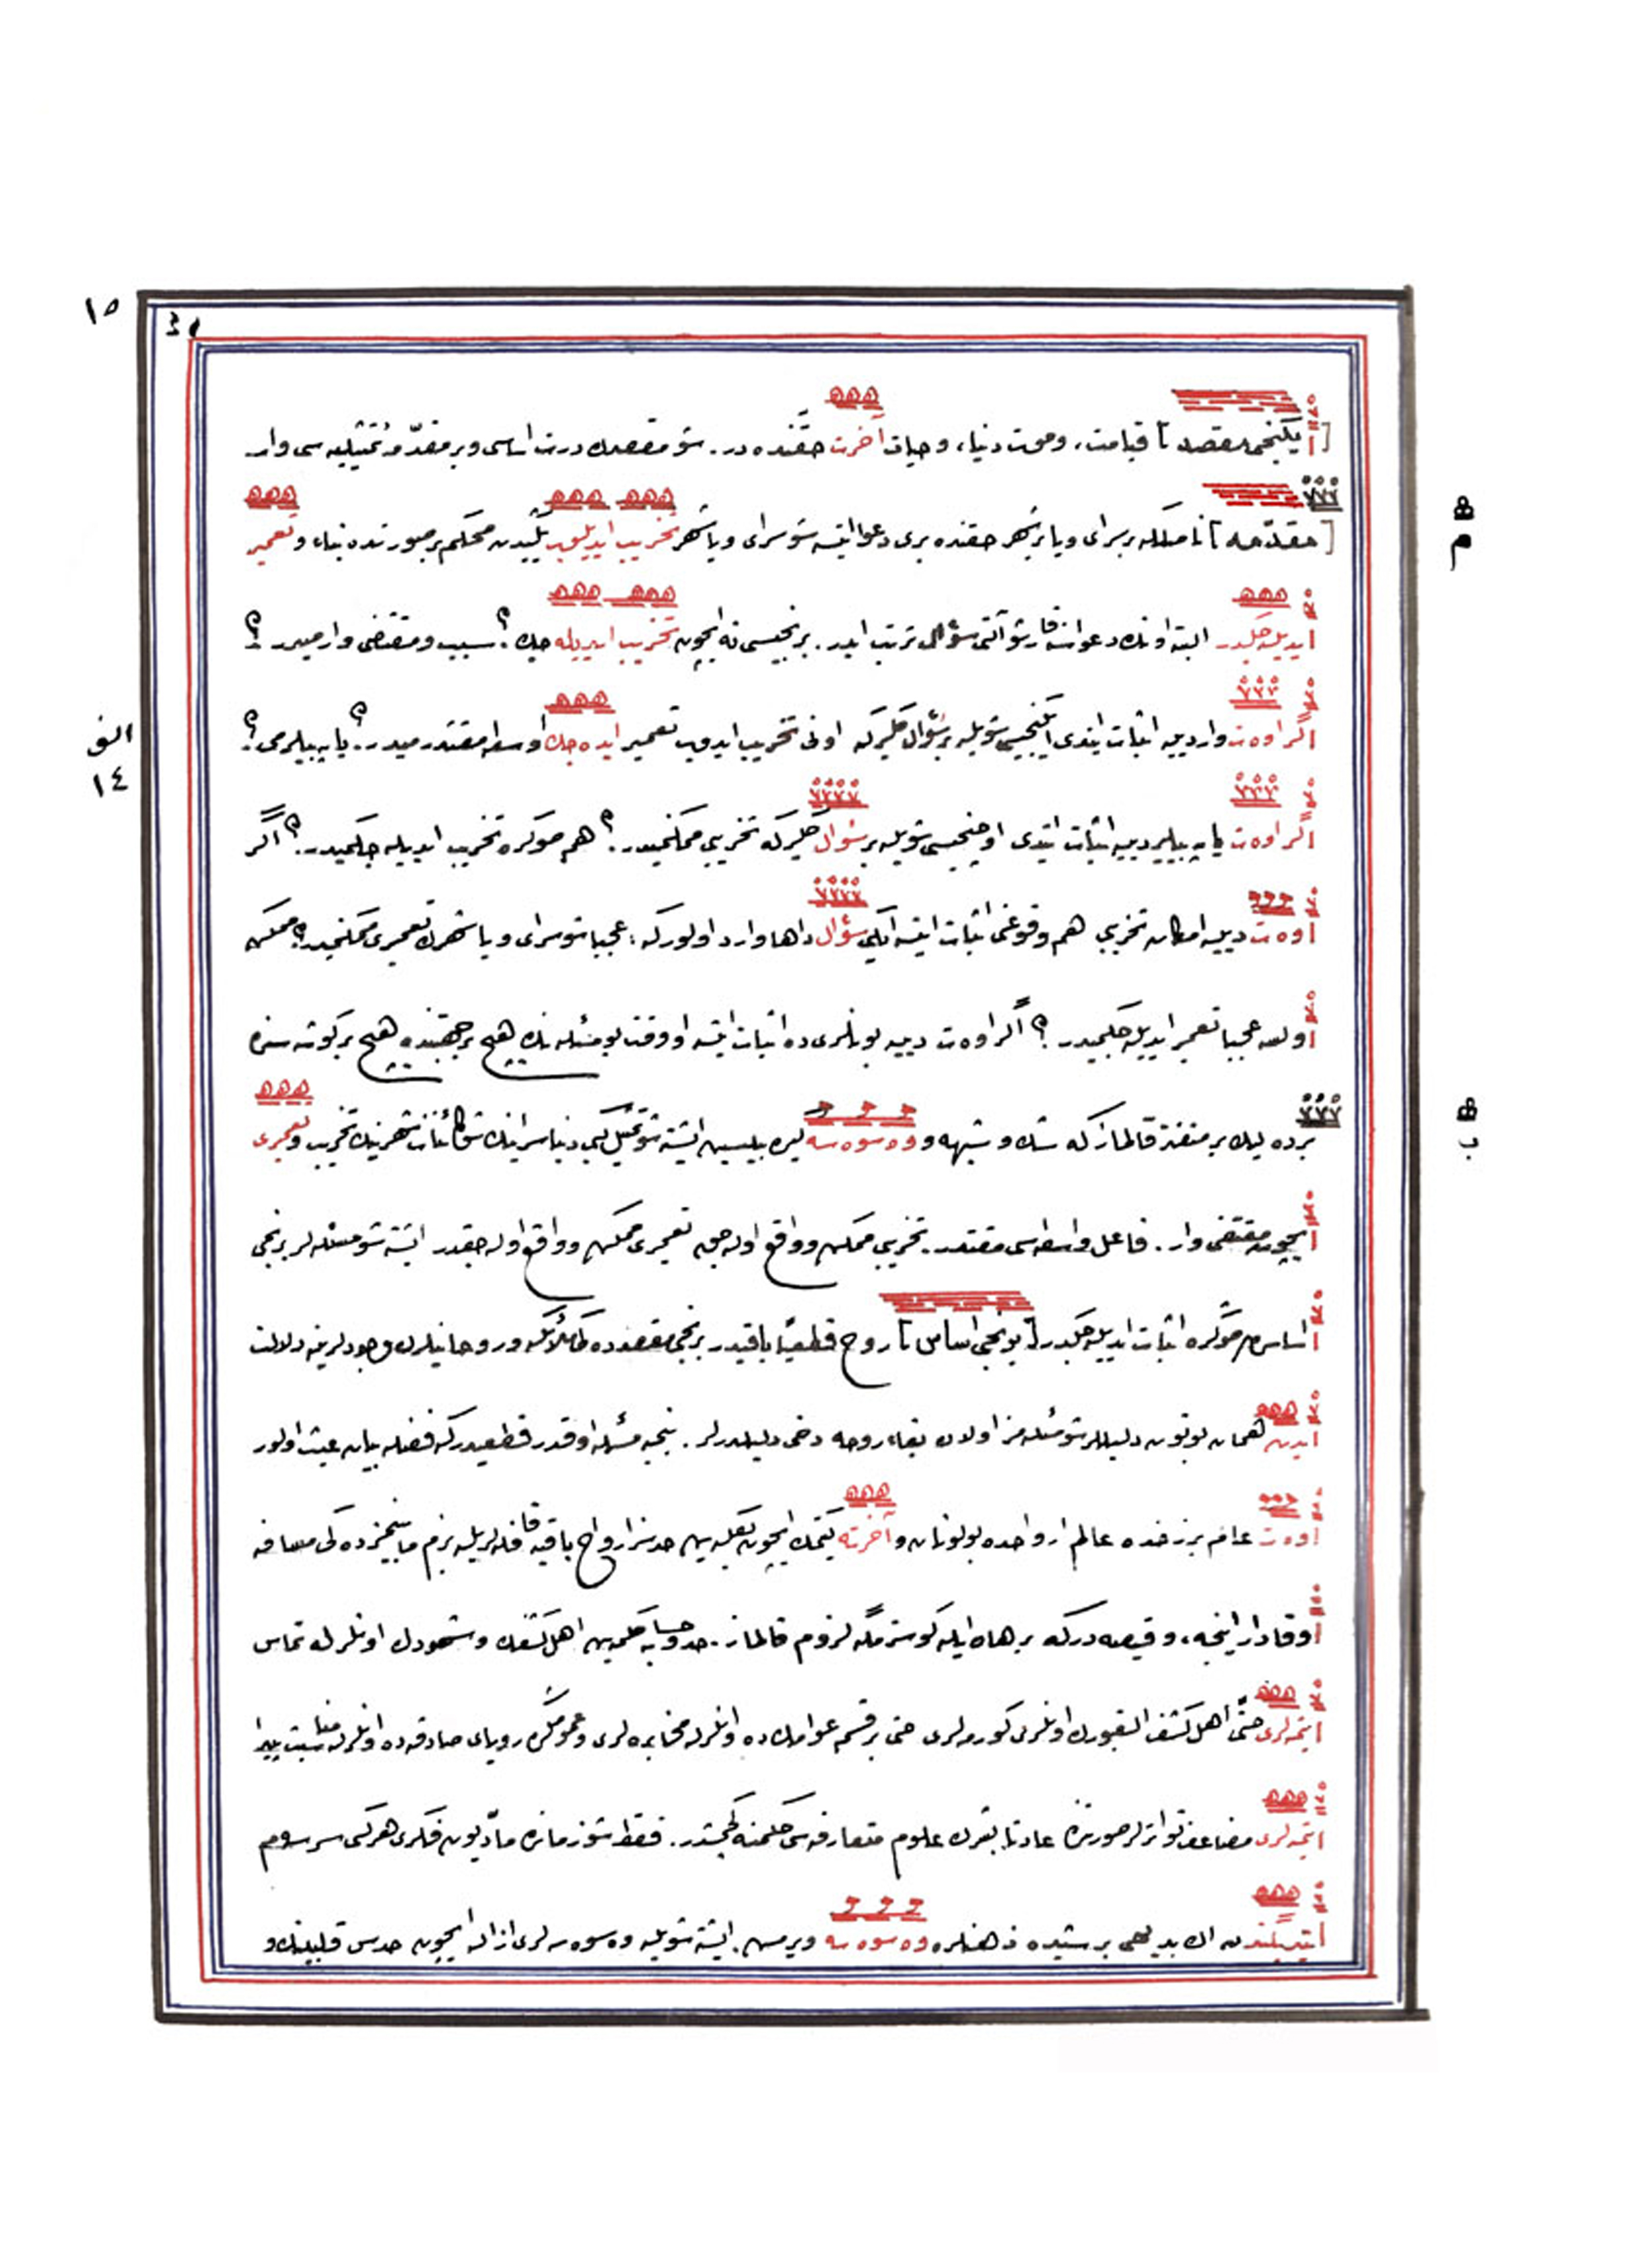 ١٥
٣١
[ایکنجی مقصد] قیامت، و موت دنیا، و حیات آخرت حقنده در. شو مقصدك درت اساسی و بر مقدّمهٔ تمثیلیه سی وار
[مقدّمه] ناصلكه بر سرای ویا بر شهر حقنده بری دعوا ایتسه شو سرای ویا شهر تخریب ایدیلوب یڭیدن محكم بر صورتده بناء و تعمیر
ایدیله جكدر البته اونك دعواسنه قارشو آلتی سؤال ترتب ایدر. برنجیسی نه ایچون تخریب ایدیله جك؟ سبب و مقتضی وارمیدر؟
اگر اوەت وار دییه اثبات ایتدی ایكنجیسی شویله بر سؤال گلیركه اونی تخریب ایدوب تعمیر ایده جك اوسته مقتدرمیدر؟ یاپه بیلرمی؟
اگر اوەت یاپه بیلیر دییه اثبات ایتدی اوچنجیسی شویله بر سؤال گلیركه تخریبی ممكنمیدر؟ هم صوكره تخریب ایدیله جكمیدر؟ اگر
اوەت دییه امكان تخریبی هم وقوعنی اثبات ایتسه ایكی سؤال داها وارد اولوركه: عجبا شو سرای ویا شهرك تعمیری ممكنمیدر؟ ممكن
اولسه عجبا تعمیر ایدیله جكمیدر؟ اگر اوەت دییه بونلری ده اثبات ایتسه او وقت بو مسئله نك هیچ بر جهتنده هیچ بر كوشه سنده
بر ده لیك بر منفذ قالماز كه شك و شبهه و وەسوەسه گیره بیلسین ایشته شو تمثیل گبی دنیا سراینك شو كائنات شهرینك تخریب و تعمیری
ایچون مقتضی وار. فاعل و اوسطه سی مقتدر. تخریبی ممكن و واقع اوله جق تعمیری ممكن و واقع اوله جقدر ایشته شو مسئله لر برنجی
اساسدن صوڭره اثبات ایدیله جكدر [برنجی اساس] روح قطعیًا باقیدر برنجی مقصدده كی ملائكه و روحانیلرك وجودلرینه دلالت
ایدن همان بوتون دلیللر شو مسئله مز اولان بقاء روحه دخی دلیلدرلر. بنجه مسئله او قدر قطعیدركه فضله بیان عبث اولور
اوەت عالم برزخده عالم ارواحده بولونان و آخرته گیتمك ایچون بكله ین حدسز ارواح باقیه قافله لریله بزم مابینمزده كی مسافه
او قدار اینجه، و قیصه دركه برهان ایله گوسترمگه لزوم قالماز. حد و حسابه گلمه ین اهل كشفك و شهودك اونلرله تماس
ایتمه لری حتّی أهل كشف القبورك اونلری گورمه لری حتی بر قسم عوامك ده اونلرله مخابره لری و عموم​ڭ رویای صادقه ده اونلرله مناسبت پیدا
ایتمه لری مضاعف تواترلر صورتنده عادتا بشرك علوم متعارفه سی حكمنه گچمشدر. فقط شو زمانده مادّیون فكری هركسی سرسم
ایتدیگندن اڭ بدیهی بر شیده ذهنلره وەسوەسه ویرمش. ایشته شویله وەسوەسه لری ازاله ایچون حدس قلبینك و
ﻫ
م
الف
١٤
ﻫ
ب